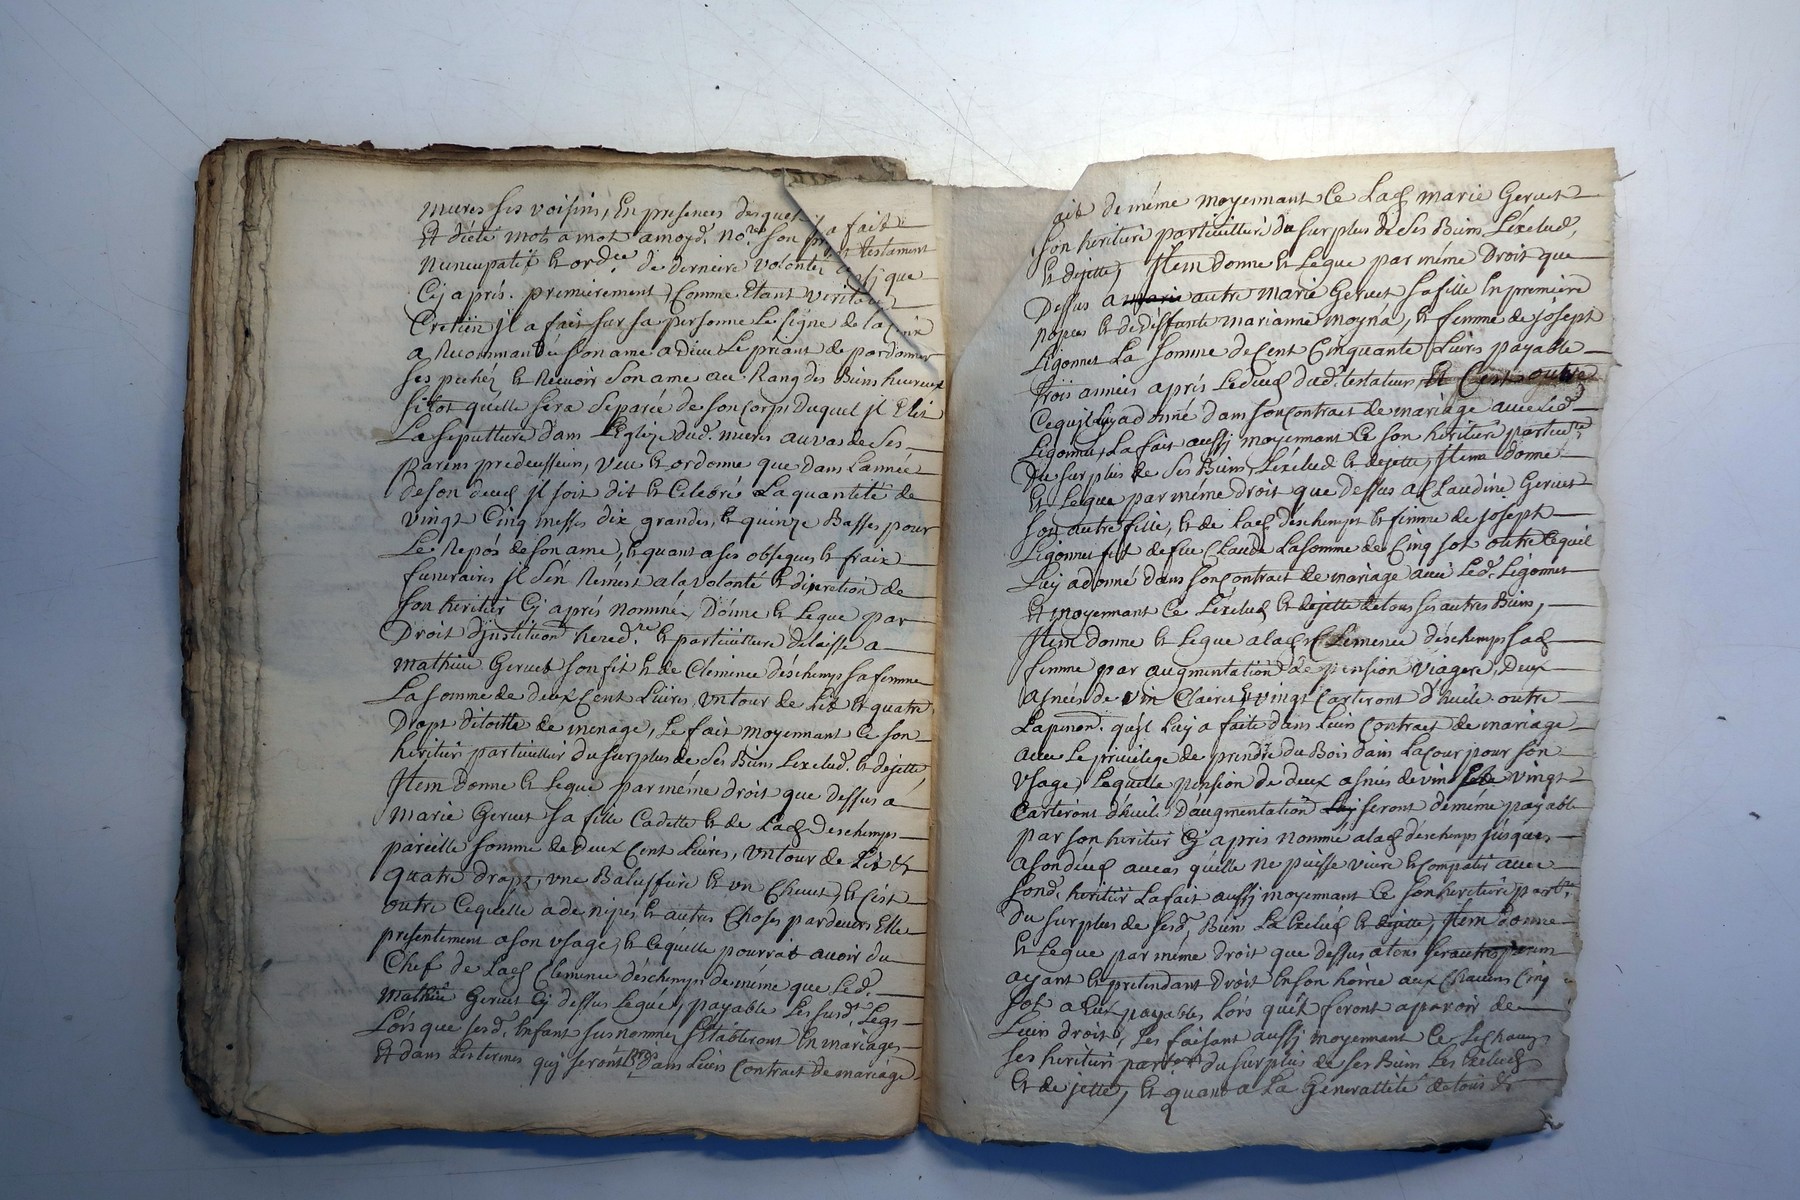 mures ses voisins, En presences desquel il a fait
Et dicté mots a mot a moyd. no.re son testament
Nuncupatif et ord.re de derniere volonté ainsi que
Cy aprés. premierement, Comme Etant veritable
Cretiēn jl a fait sur sa personne Le signe de la Croix
a Recommandé son ame a dieu Le priant de pardonner
ses pechéz et Recevoir son ame au Rang des Biens heureux
sitot quelle sera separée de son corps Duquel jl Elit
La sepulture dans L'Eglize dud. mures au vas de ses
parens predecesseurs, veu et ordonne que dans L'année
de son deced jl soit dit et Celebré La quantité de
vingt Cinq messes dix grandes, et quinze Basses pour
Le Repos de son ame, et quant a ses obseques et fraix
funeraires jl s'en Remest a la volonté et discretion de
son heritier Cy aprés nommé, Donne et Legue par
Droit d'jnstitution hered.re et particulliere delaisse a
mathieu Gervet son fit et de Clemence déschemps sa femme
La somme de deux Cent Livres, un tour de Lit et quatre
Draps de toille de menage, Le fait moyennant Ce son
heritier particullier du surplus de ses Biens Lexclud. et dejette,
Jtem donne et Legue par méme droit que dessus a
marie Gervet sa fille Cadette et de Lad. Deschemps
pareille somme de Deux Cent Livres, un tour de Lit et
quatre draps, une et un Chevet, et C'est
outre Cequelle a de nipes et autres Choses pardevers Elle
presentement a son usage, et Cequelle pourrat avoir du
Chef de Lad. Clemence déschemps de méme que Led.
mathieu Gervet Cy dessus Legué, payable Les susd. Legs
Lors que sesd. Enfant susnommés s'Etabliront En mariages
Et dans Les termes qui seront dans Leurs Contrat de mariage
ait de méme moyennant Ce Lad. marie Gervet
son heritiere particulliere du surplus de ses Biens L'exclud,
et dejette, Jtem donne et Legue par méme Droit que
Dessus a marie autre marie Gervet sa fille En premiere
nopces et de deffunte marianne moyna, et femme de joseph
Ligonnet La somme de Cent Cinquante Livres payable
trois années aprés Le deced dud. testateur, Et C'est outre
Cequil Luy a donné dans son Contrat de mariage avec Led.
Ligonnet, La fait aussi moyennant Ce son heritiere
Du surplus de ses Biens, Lexclud et dejette, Jtem donne
et Legue par méme droit que dessus a Claudine Gervet
son autre fille, et de Lad. déschemps et femme de joseph
Ligonnet fit de feu Claude La somme de Cinq sot outre Cequil
Luy a donné dans son Contrat de mariage avec Led. Ligonnet
Et moyennant Ce L'exclud et dejette de tous ses autres Biens,
Jtem donne et Legue a Lad. Clemence déschemps sad.
femme par augmentation de pension viagere, deux
asnées de vin Claire et vingt Carterons d'huile outre
La pension. quil Luy a faite dans Leurs Contrat de mariage
avec Le privilege de prendre du Bois dans La Cour pour son
usage, Laquelle pension de deux asnées de vin vingt
Carterons d'huile D'augmentation seront deméme payable
par son heritier Cy apres nommé a Lad. déschemps jusques
a son deced au cas quelle ne puisse vivre et Compatir avec
sond. heritier La fait aussi moyennant Ce son heritiere
du surplus de sesd. Biens La Exclud et dejette, Jtem donne
et Legue par méme droit que dessus a tous ses autres parens
ayant et pretendant Droit En son hoirie aux Chacuns Cinq
sot a Eux payables Lors quīl seront apparoir de
Leurs droits, Les faisant aussi moyennant Ce
ses heritiers du surplus de ses Biens Les Exclud
Et dejette, et quant a La Generallité de tous